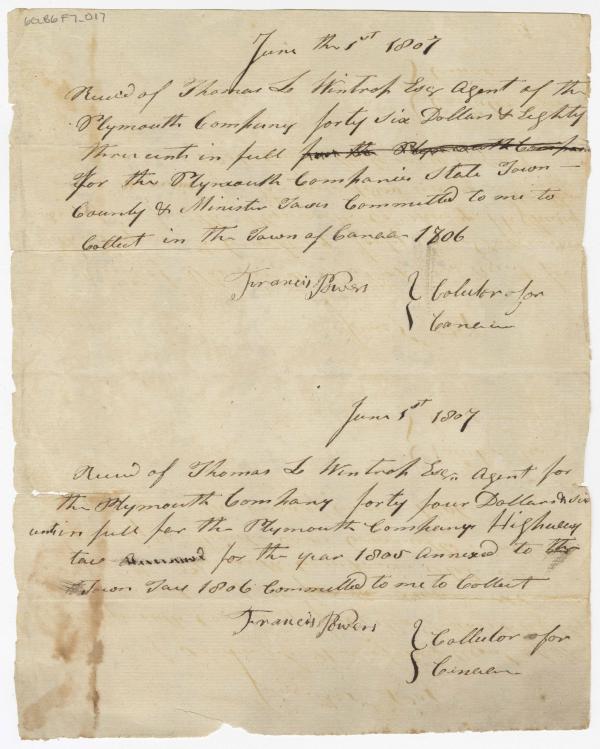 60.B6 F7_017
June the 1st 1807
Recvd of Thomas L Wintrop Esqr Agent of the
Plymouth Company forty six Dollars & Eighty
three cents in full for the Plymouth Compan
for the Plymouth Companies State Town
County & Minister Taxes Committed to me to
Collect in the Town of Canaan 1806
Francis Powers { Colector for
Canaan
June 1st 1807
Recvd of Thomas L Wintrop Esqr Agent for
the Plymouth Company forty four Dollars & six
cents in full for the Plymouth Company Highway
tax for the year 1805 annexed to the
Town Tax 1806 Committed to me to Collect
Francis Powers { Collector for
Canaan